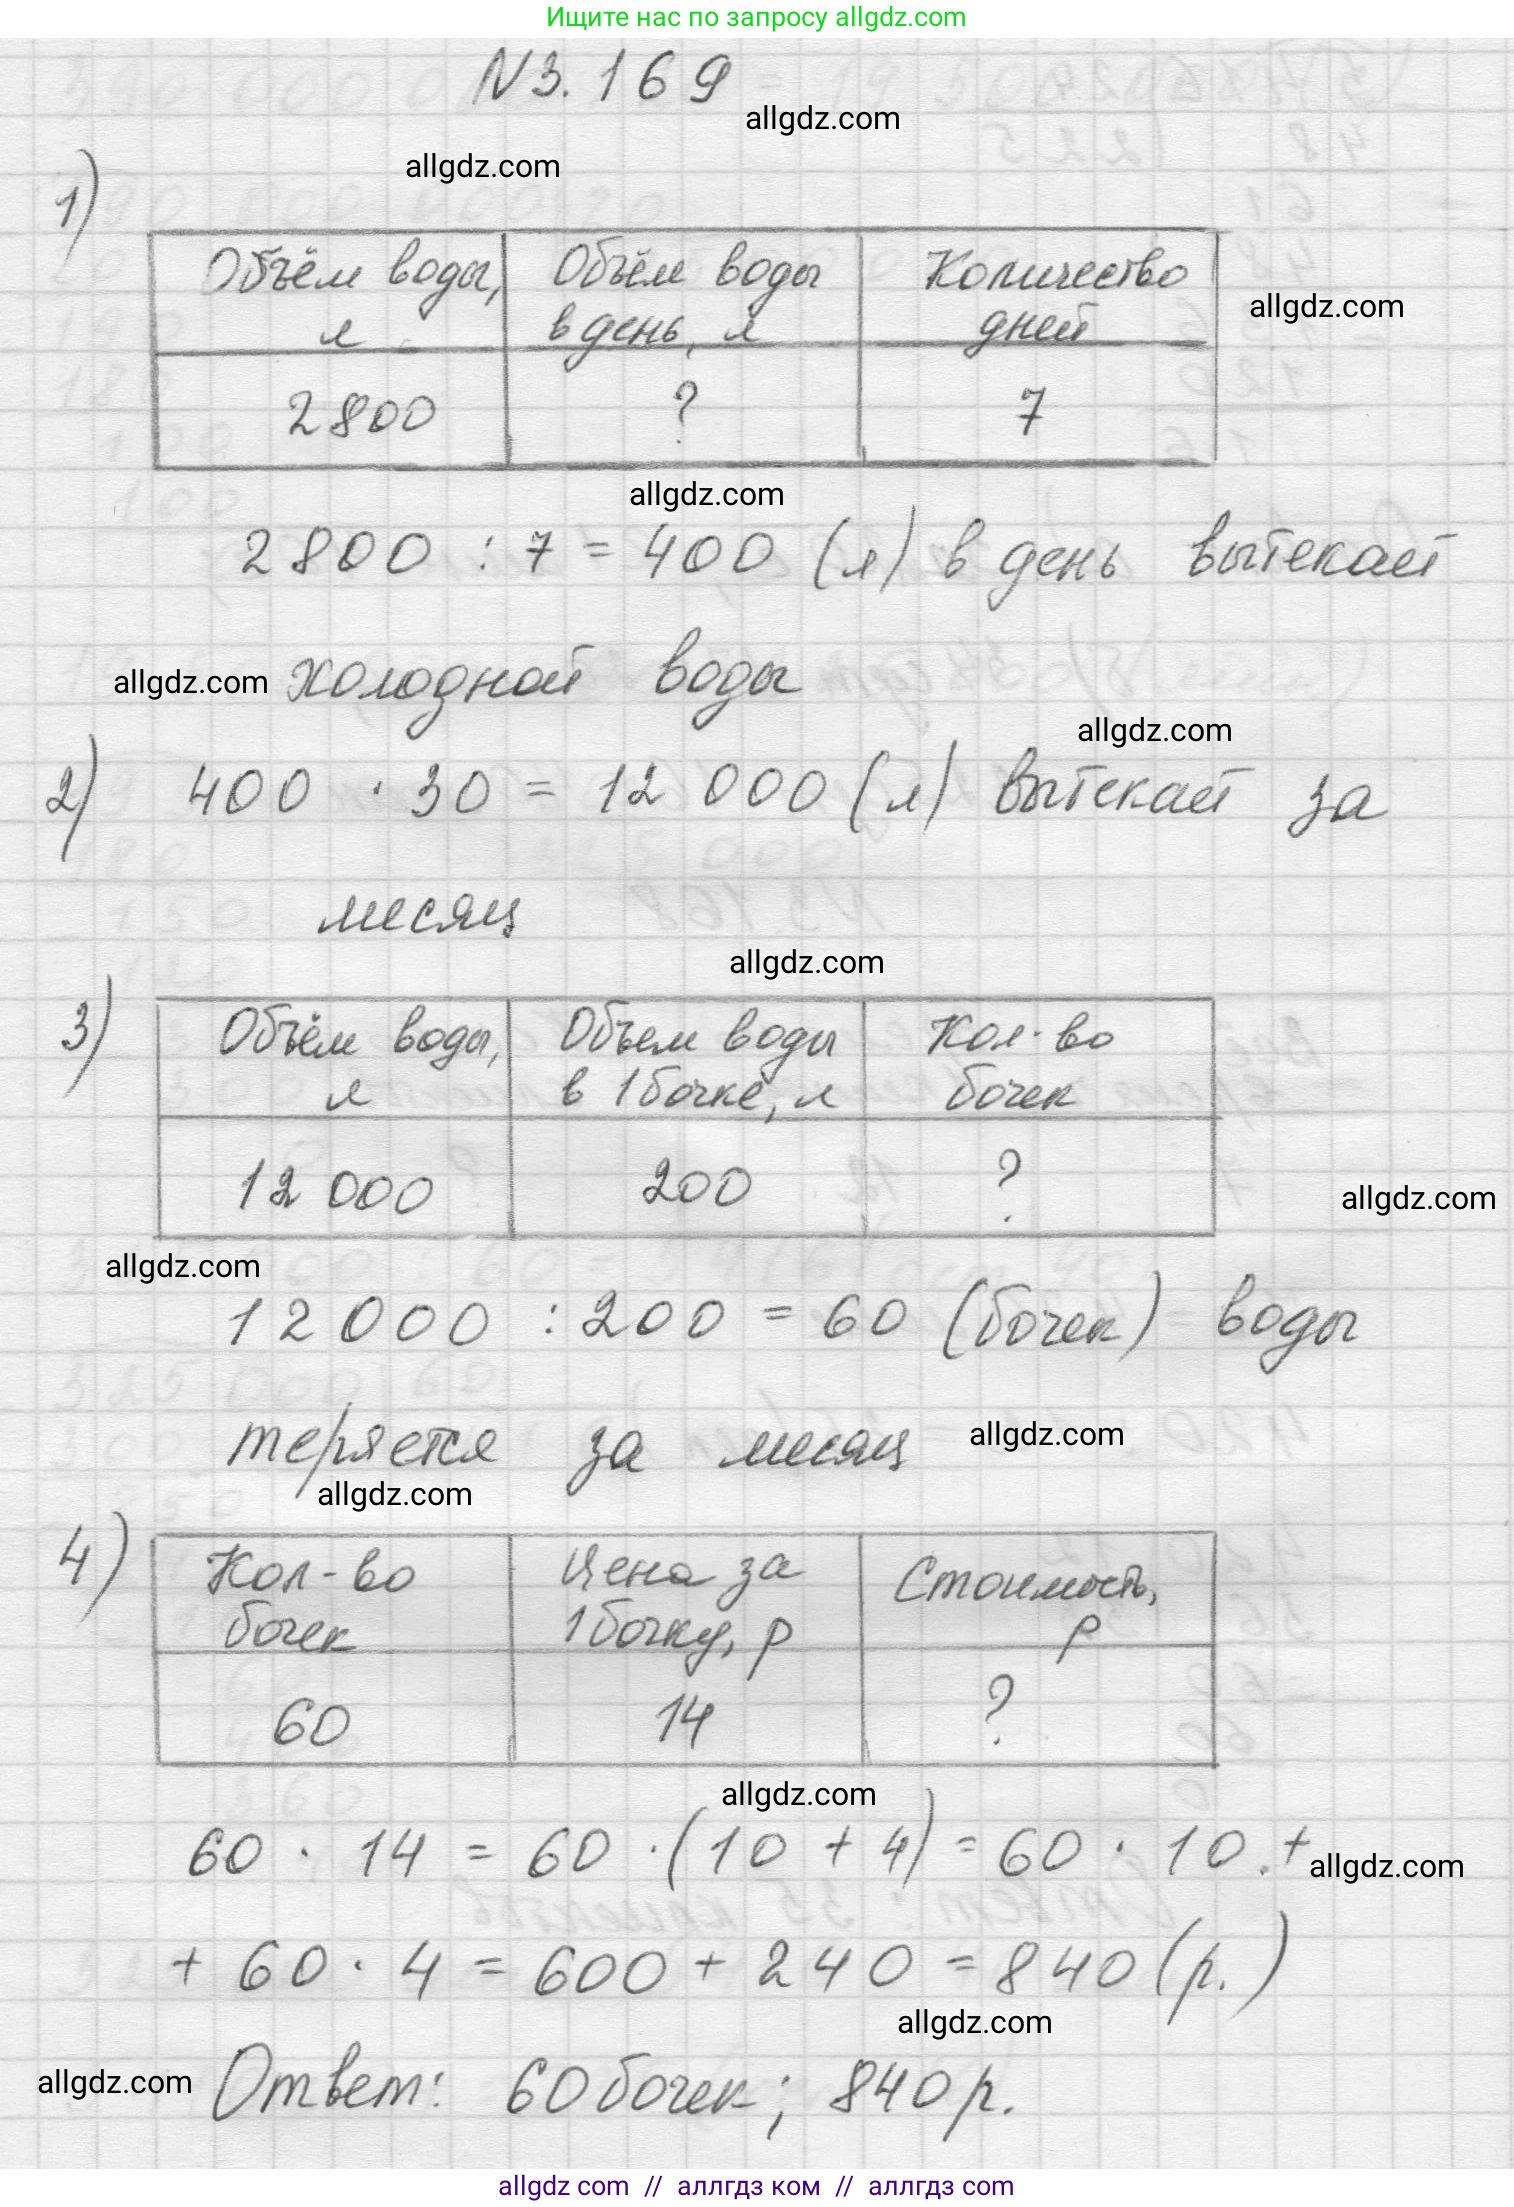 Ищите нас по запросу allgdz.com
N3.169
allgdz.com
allgdz.com
1)
Объём воды, л | Объём воды в день, л | Количество дней
allgdz.com
2800 | ? | 7
allgdz.com
2800 : 7 = 400 (л) в день вытекает
allgdz.com холодной воды
allgdz.com
2) 400 · 30 = 12 000 (л) вытекает за
месяц
allgdz.com
3)
Объём воды, л | Объем воды в 1 бочке, л | Кол-во бочек
12 000 | 200 | ?
allgdz.com
allgdz.com
12000 : 200 = 60 (бочек) воды
теряется за месяц allgdz.com
allgdz.com
4)
Кол-во бочек | Цена за 1 бочку, р | Стоимость, р
60 | 14 | ?
allgdz.com
60 · 14 = 60 · (10 + 4) = 60 · 10 +
allgdz.com
+ 60 · 4 = 600 + 240 = 840 (р.)
allgdz.com
allgdz.com Ответ: 60 бочек; 840 р.
allgdz com // аллгдз ком // аллгдз com